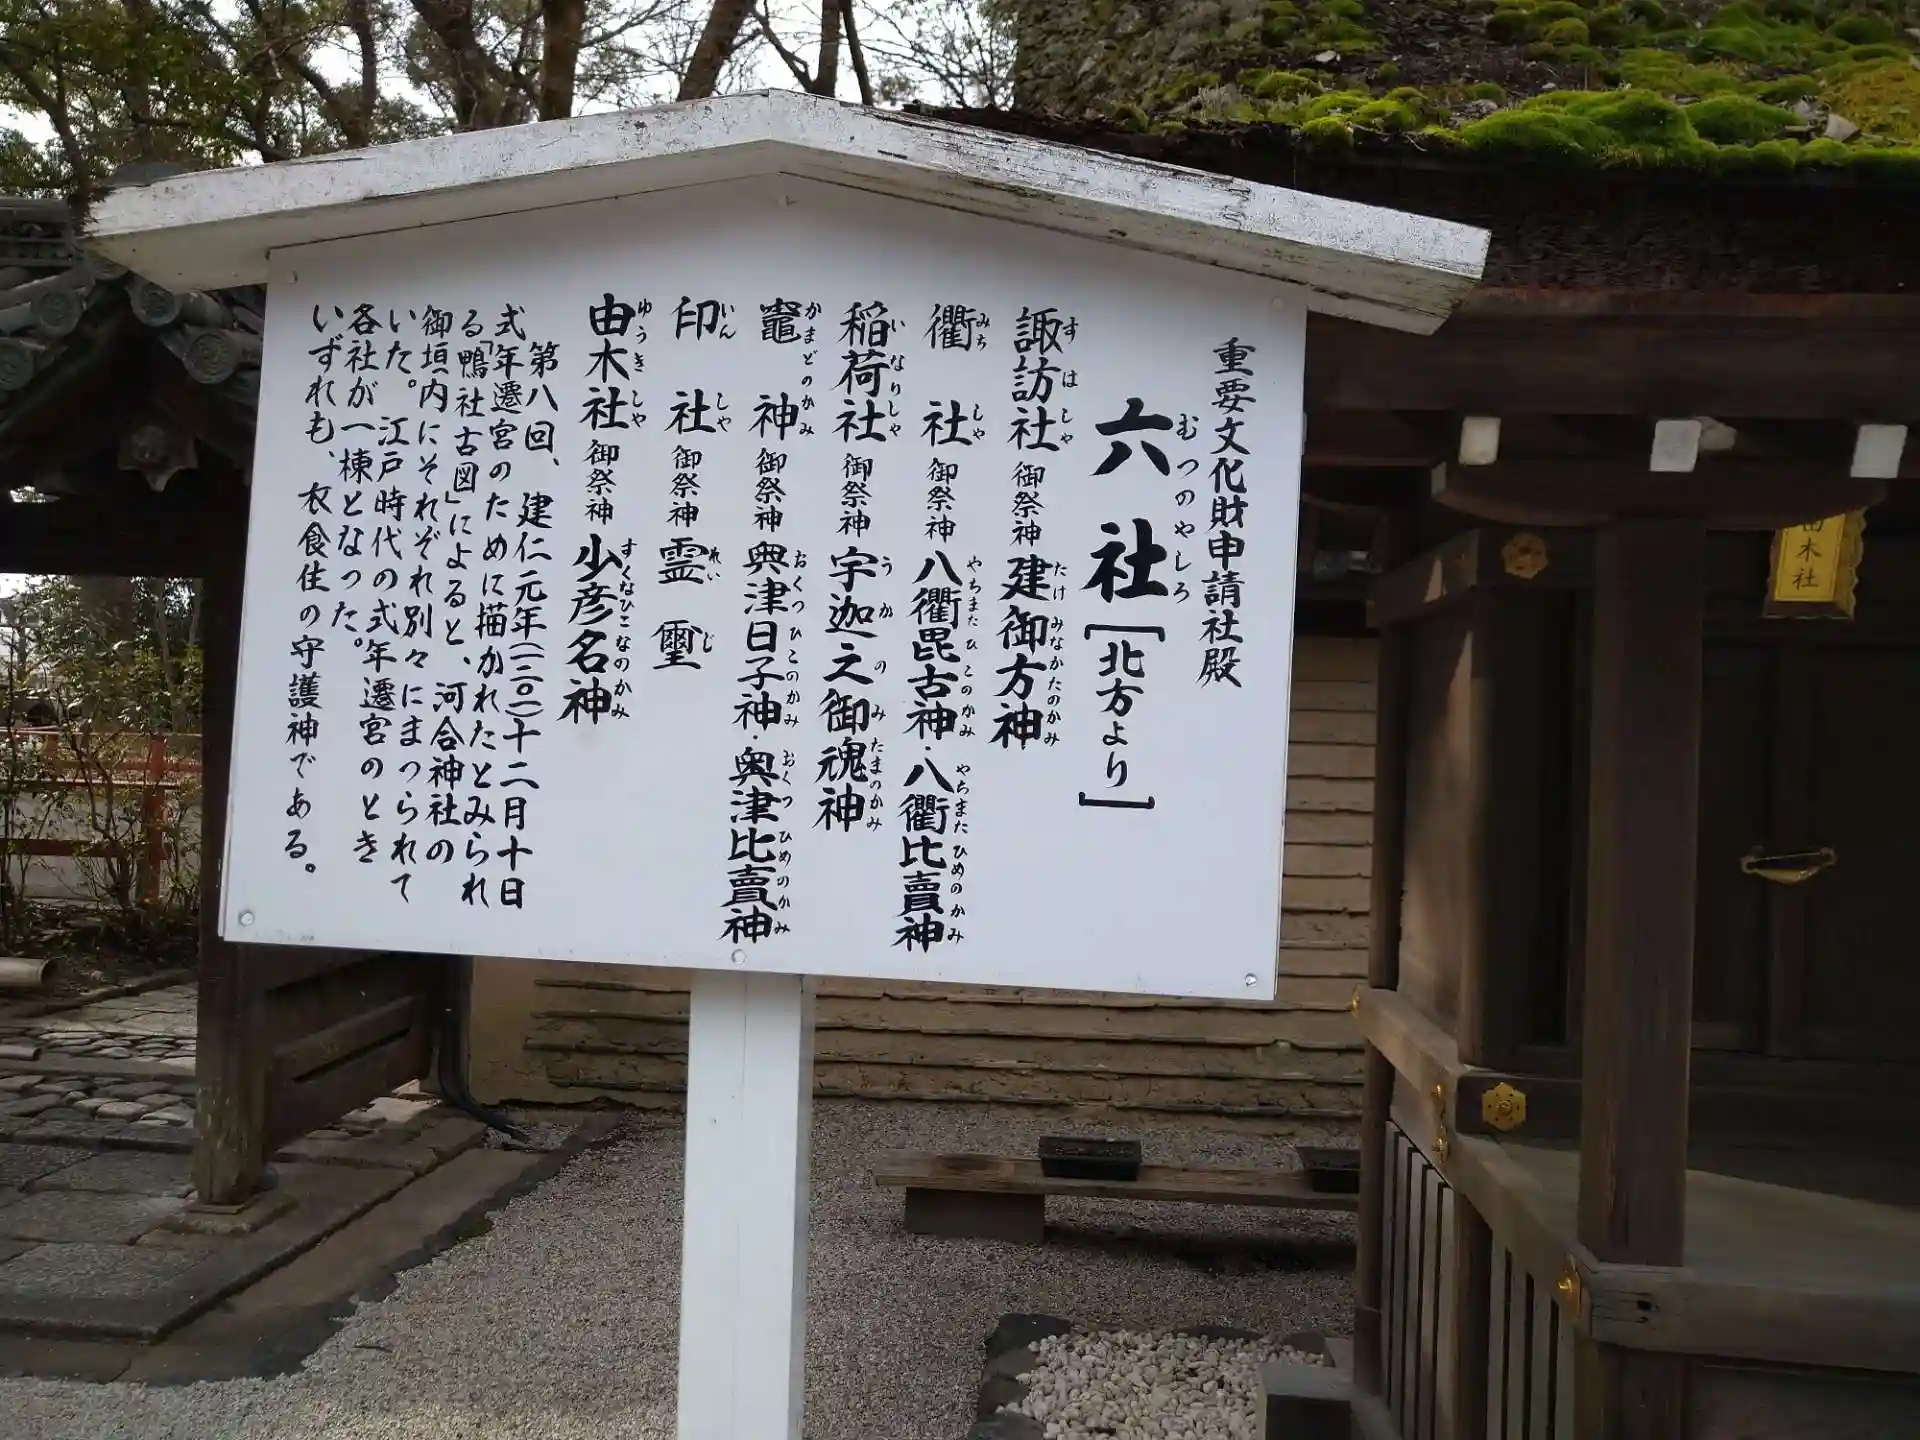 重要文化財申請社殿
六社［北方より］
むつのやしろ
諏訪社 御祭神 建御方神
すはしゃ たけみなかたのかみ
衢社 御祭神 八衢毘古神・八衢比賣神
みちしゃ やちまたひこのかみ やちまたひめのかみ
稲荷社 御祭神 宇迦之御魂神
いなりしゃ うかのみたまのかみ
竈神 御祭神 奥津日子神・奥津比賣神
かまどのかみ おくつひこのかみ おくつひめのかみ
印社 御祭神 霊璽
いんしゃ れいじ
由木社 御祭神 少彦名神
ゆうきしや すくなひこなのかみ
第八回、建仁元年(一二〇一)十二月十日
式年遷宮のために描かれたとみられ
る「鴨社古図」によると、河合神社の
御垣内にそれぞれ別々にまつられて
いた。江戸時代の式年遷宮のとき
各社が一棟となった。
いずれも、衣食住の守護神である。
由木社